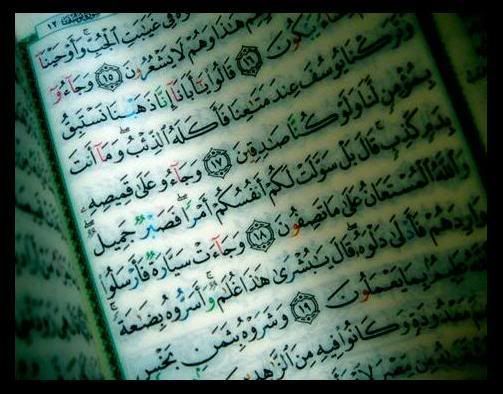 فِى غَيَٰبَتِ ٱلْجُبِّ وَأَوْحَيْنَآ
هَٰذَا وَهُمْ لَا يَشْعُرُونَ ١٥ وَجَآءُو
يَبْكُونَ ١٦ قَالُوا۟ يَٰٓأَبَانَآ إِنَّا ذَهَبْنَا نَسْتَبِقُ
وَتَرَكْنَا يُوسُفَ عِندَ مَتَٰعِنَا فَأَكَلَهُ ٱلذِّئْبُ وَمَآ أَنتَ
بِمُؤْمِنٍ لَّنَا وَلَوْ كُنَّا صَٰدِقِينَ ١٧ وَجَآءُو عَلَىٰ قَمِيصِهِۦ
بِدَمٍ كَذِبٍ قَالَ بَلْ سَوَّلَتْ لَكُمْ أَنفُسُكُمْ أَمْرًا فَصَبْرٌ جَمِيلٌ
وَٱللَّهُ ٱلْمُسْتَعَانُ عَلَىٰ مَا تَصِفُونَ ١٨ وَجَآءَتْ سَيَّارَةٌ فَأَرْسَلُوا۟
وَارِدَهُمْ فَأَدْلَىٰ دَلْوَهُۥ قَالَ يَٰبُشْرَىٰ هَٰذَا غُلَٰمٌ وَأَسَرُّوهُ بِضَٰعَةً
عَلِيمٌۢ بِمَا يَعْمَلُونَ ١٩ وَشَرَوْهُ بِثَمَنٍۭ بَخْسٍ
مَعْدُودَةٍ وَكَانُوا۟ فِيهِ مِنَ ٱلزَّٰهِدِينَ
مِن مِّصْرَ